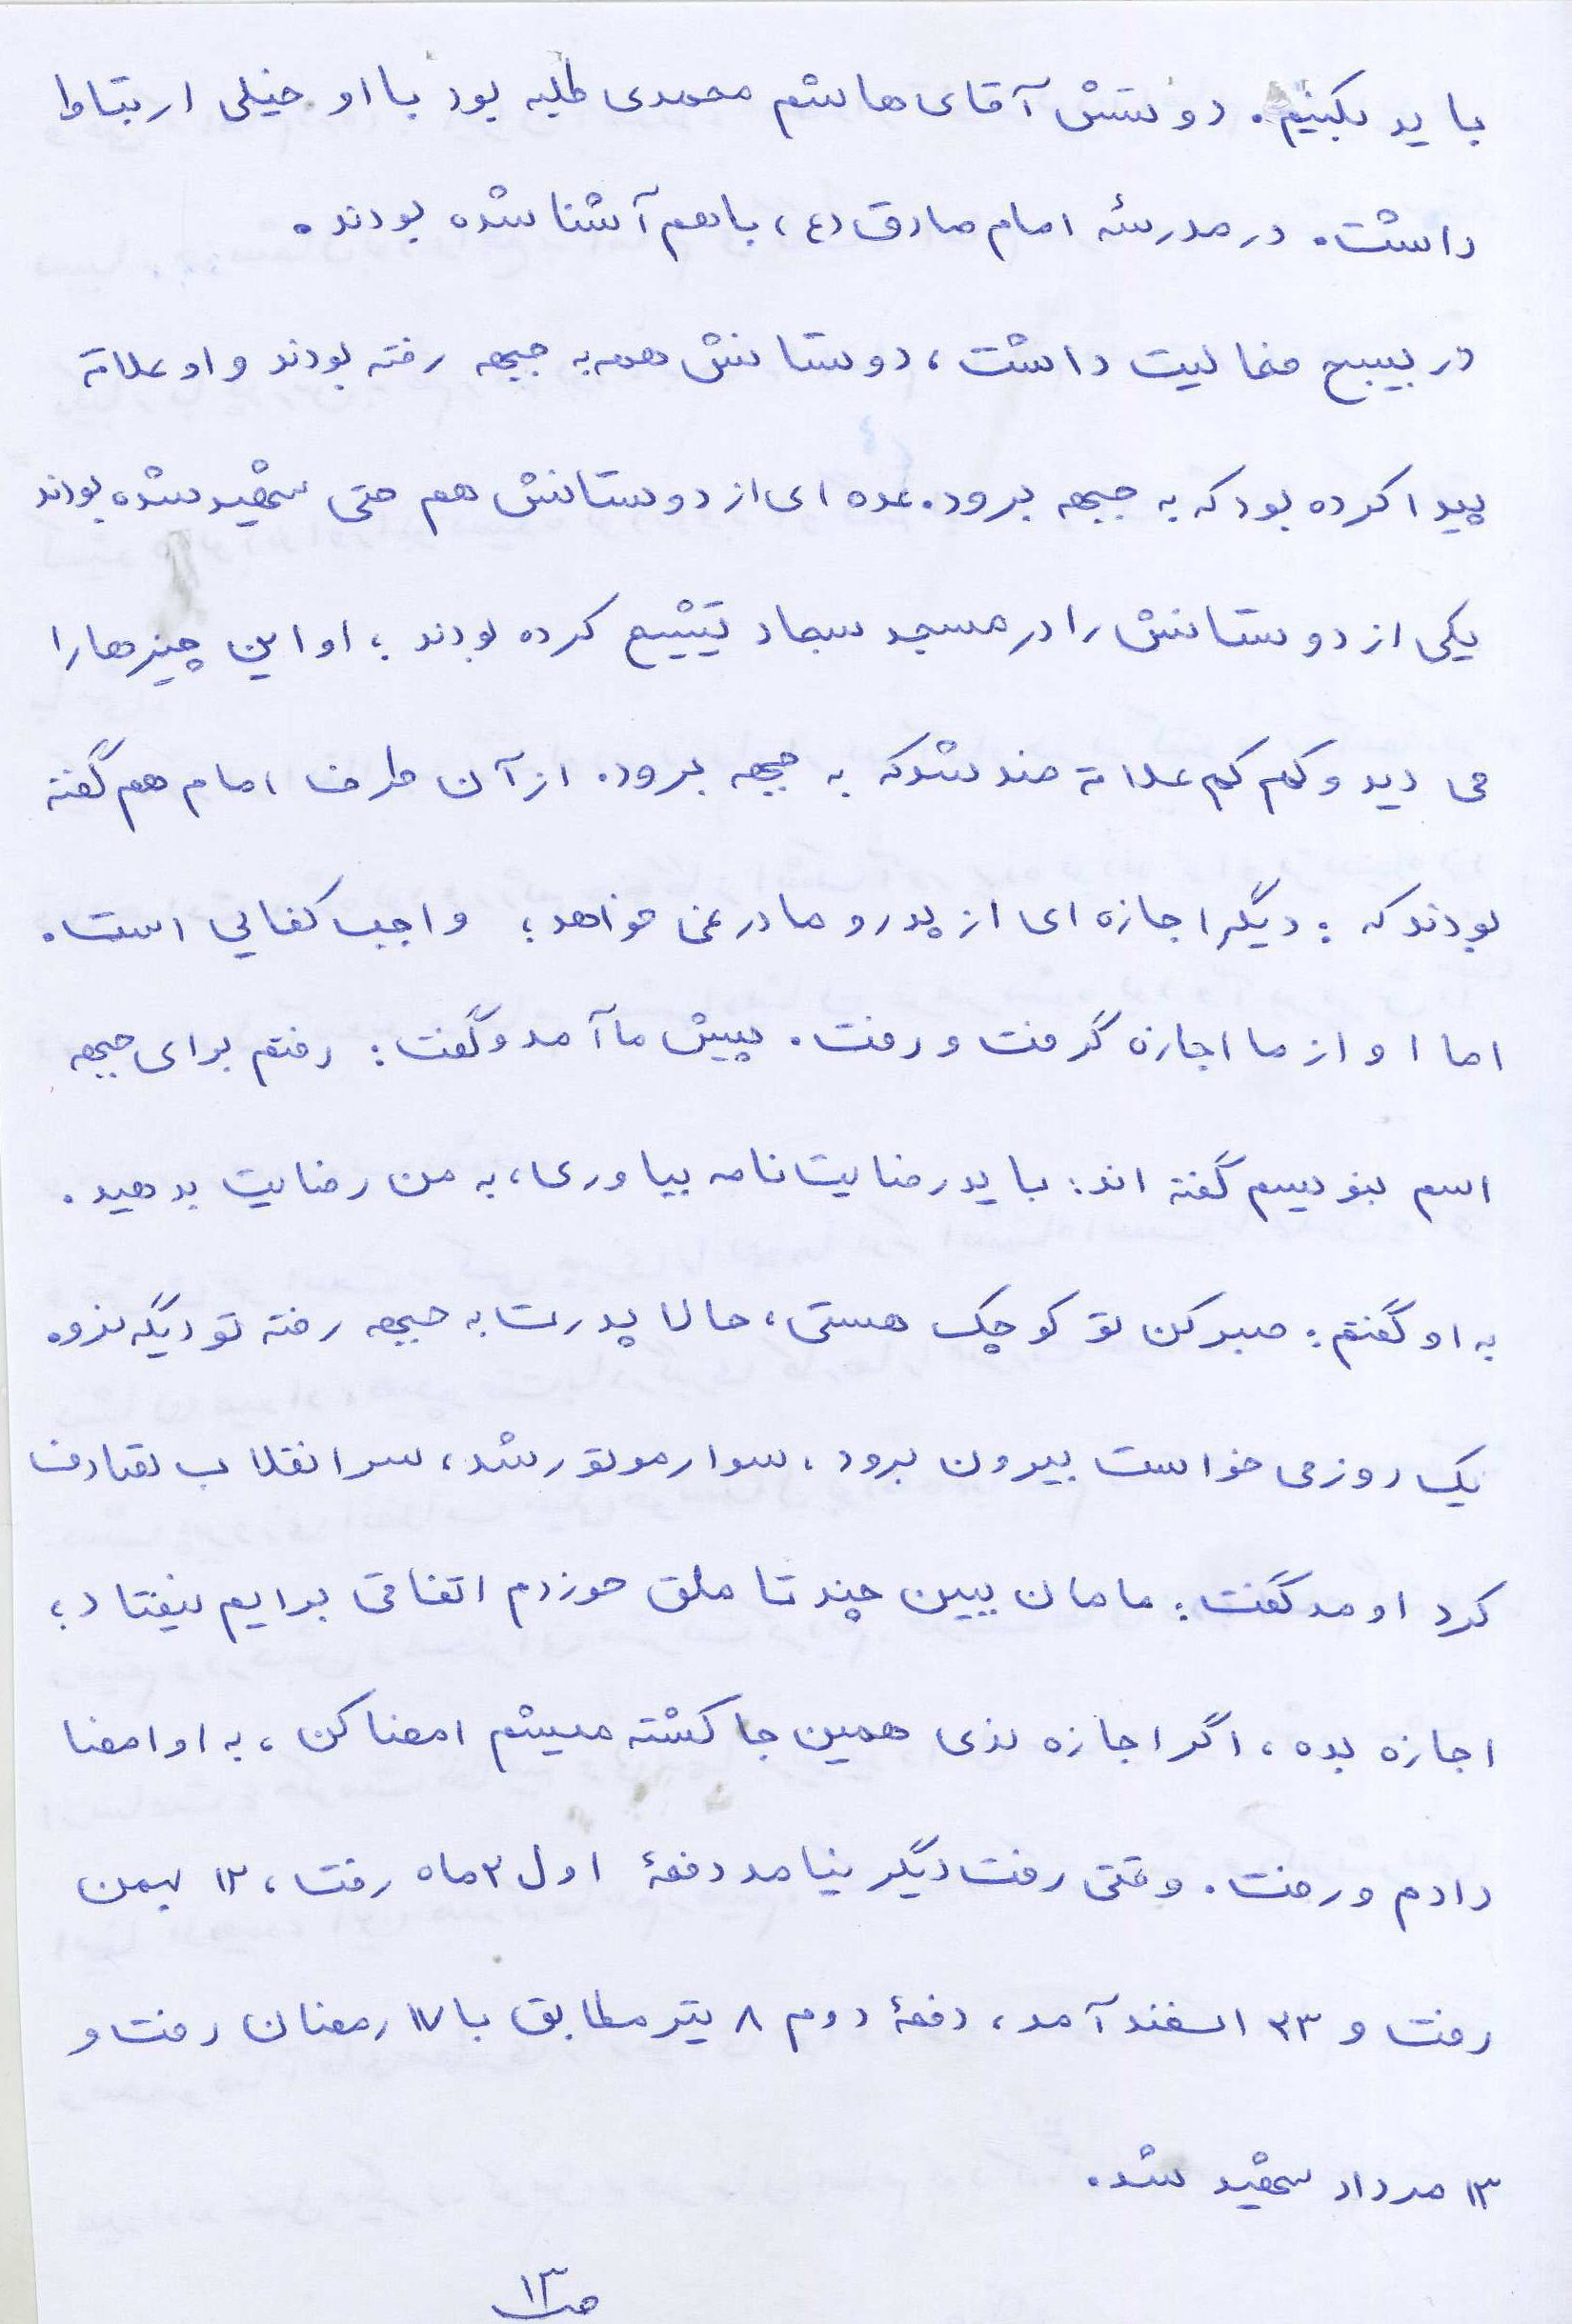 باید بکنیم. دوستش آقای هاشم محمدی طلبه بود با او خیلی ارتباط
داشت. در مدرسهٔ امام صادق (ع) باهم آشنا شده بودند.
در بسیج فعالیت داشت، دوستانش همه به جبهه رفته بودند و او علاقه
پیدا کرده بود که به جبهه برود. عده ای از دوستانش هم حتی شهید شده بودند
یکی از دوستانش را در مسجد سجاد تشییع کرده بودند؛ او این چیزها را
می دید و کم کم علاقه مند شد که به جبهه برود. از آن طرف امام هم گفته
بودند که: دیگر اجازه ای از پدر و مادر نمی خواهد؛ واجب کفایی است.
اما او از ما اجازه گرفت و رفت. پیش ما آمد و گفت: رفتم برای جبهه
اسم بنویسم گفته اند: باید رضایت نامه بیاوری، به من رضایت بدهید.
به او گفتم: صبر کن تو کوچک هستی، حالا پدرت به جبهه رفته تو دیگه نرو.
یک روز می خواست بیرون برود، سوار موتور شد، سر انقلاب تصادف
کرد اومد گفت: مامان ببین چند تا ملق خوردم اتفاقی برایم نیفتاد؛
اجازه بده، اگر اجازه ندی همین جا کشته میشم امضا کن، به او امضا
دادم و رفت. وقتی رفت دیگر نیامد دفعهٔ اول ۲ ماه رفت، ۱۲ بهمن
رفت و ۲۳ اسفند آمد، دفعهٔ دوم ۸ تیر مطابق با ۱۷ رمضان رفت و
۱۳ مرداد شهید شد.
ص ۱۳